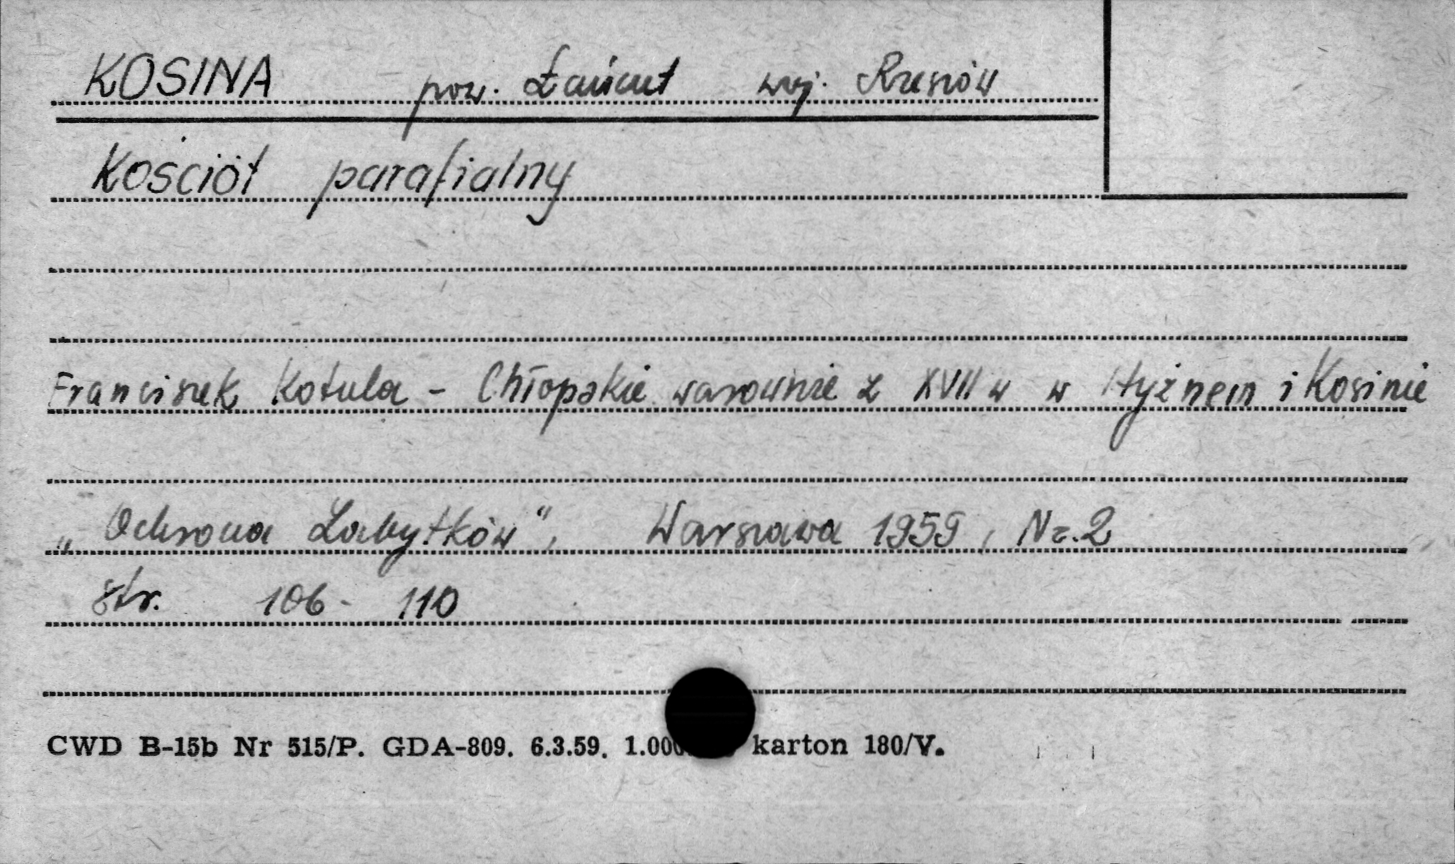 KOSINA pow. Łańcut woj. Rzeszów
Kościół parafialny
Franciszek Kotula - Chłopskie warownie z XVII w w Hyżnem i Kosinie
„Ochrona Zabytków", Warszawa 1959, Nr. 2
str. 106 - 110
CWD B-15b Nr 515/P. GDA-809. 6.3.59. 1.000 karton 180/V.